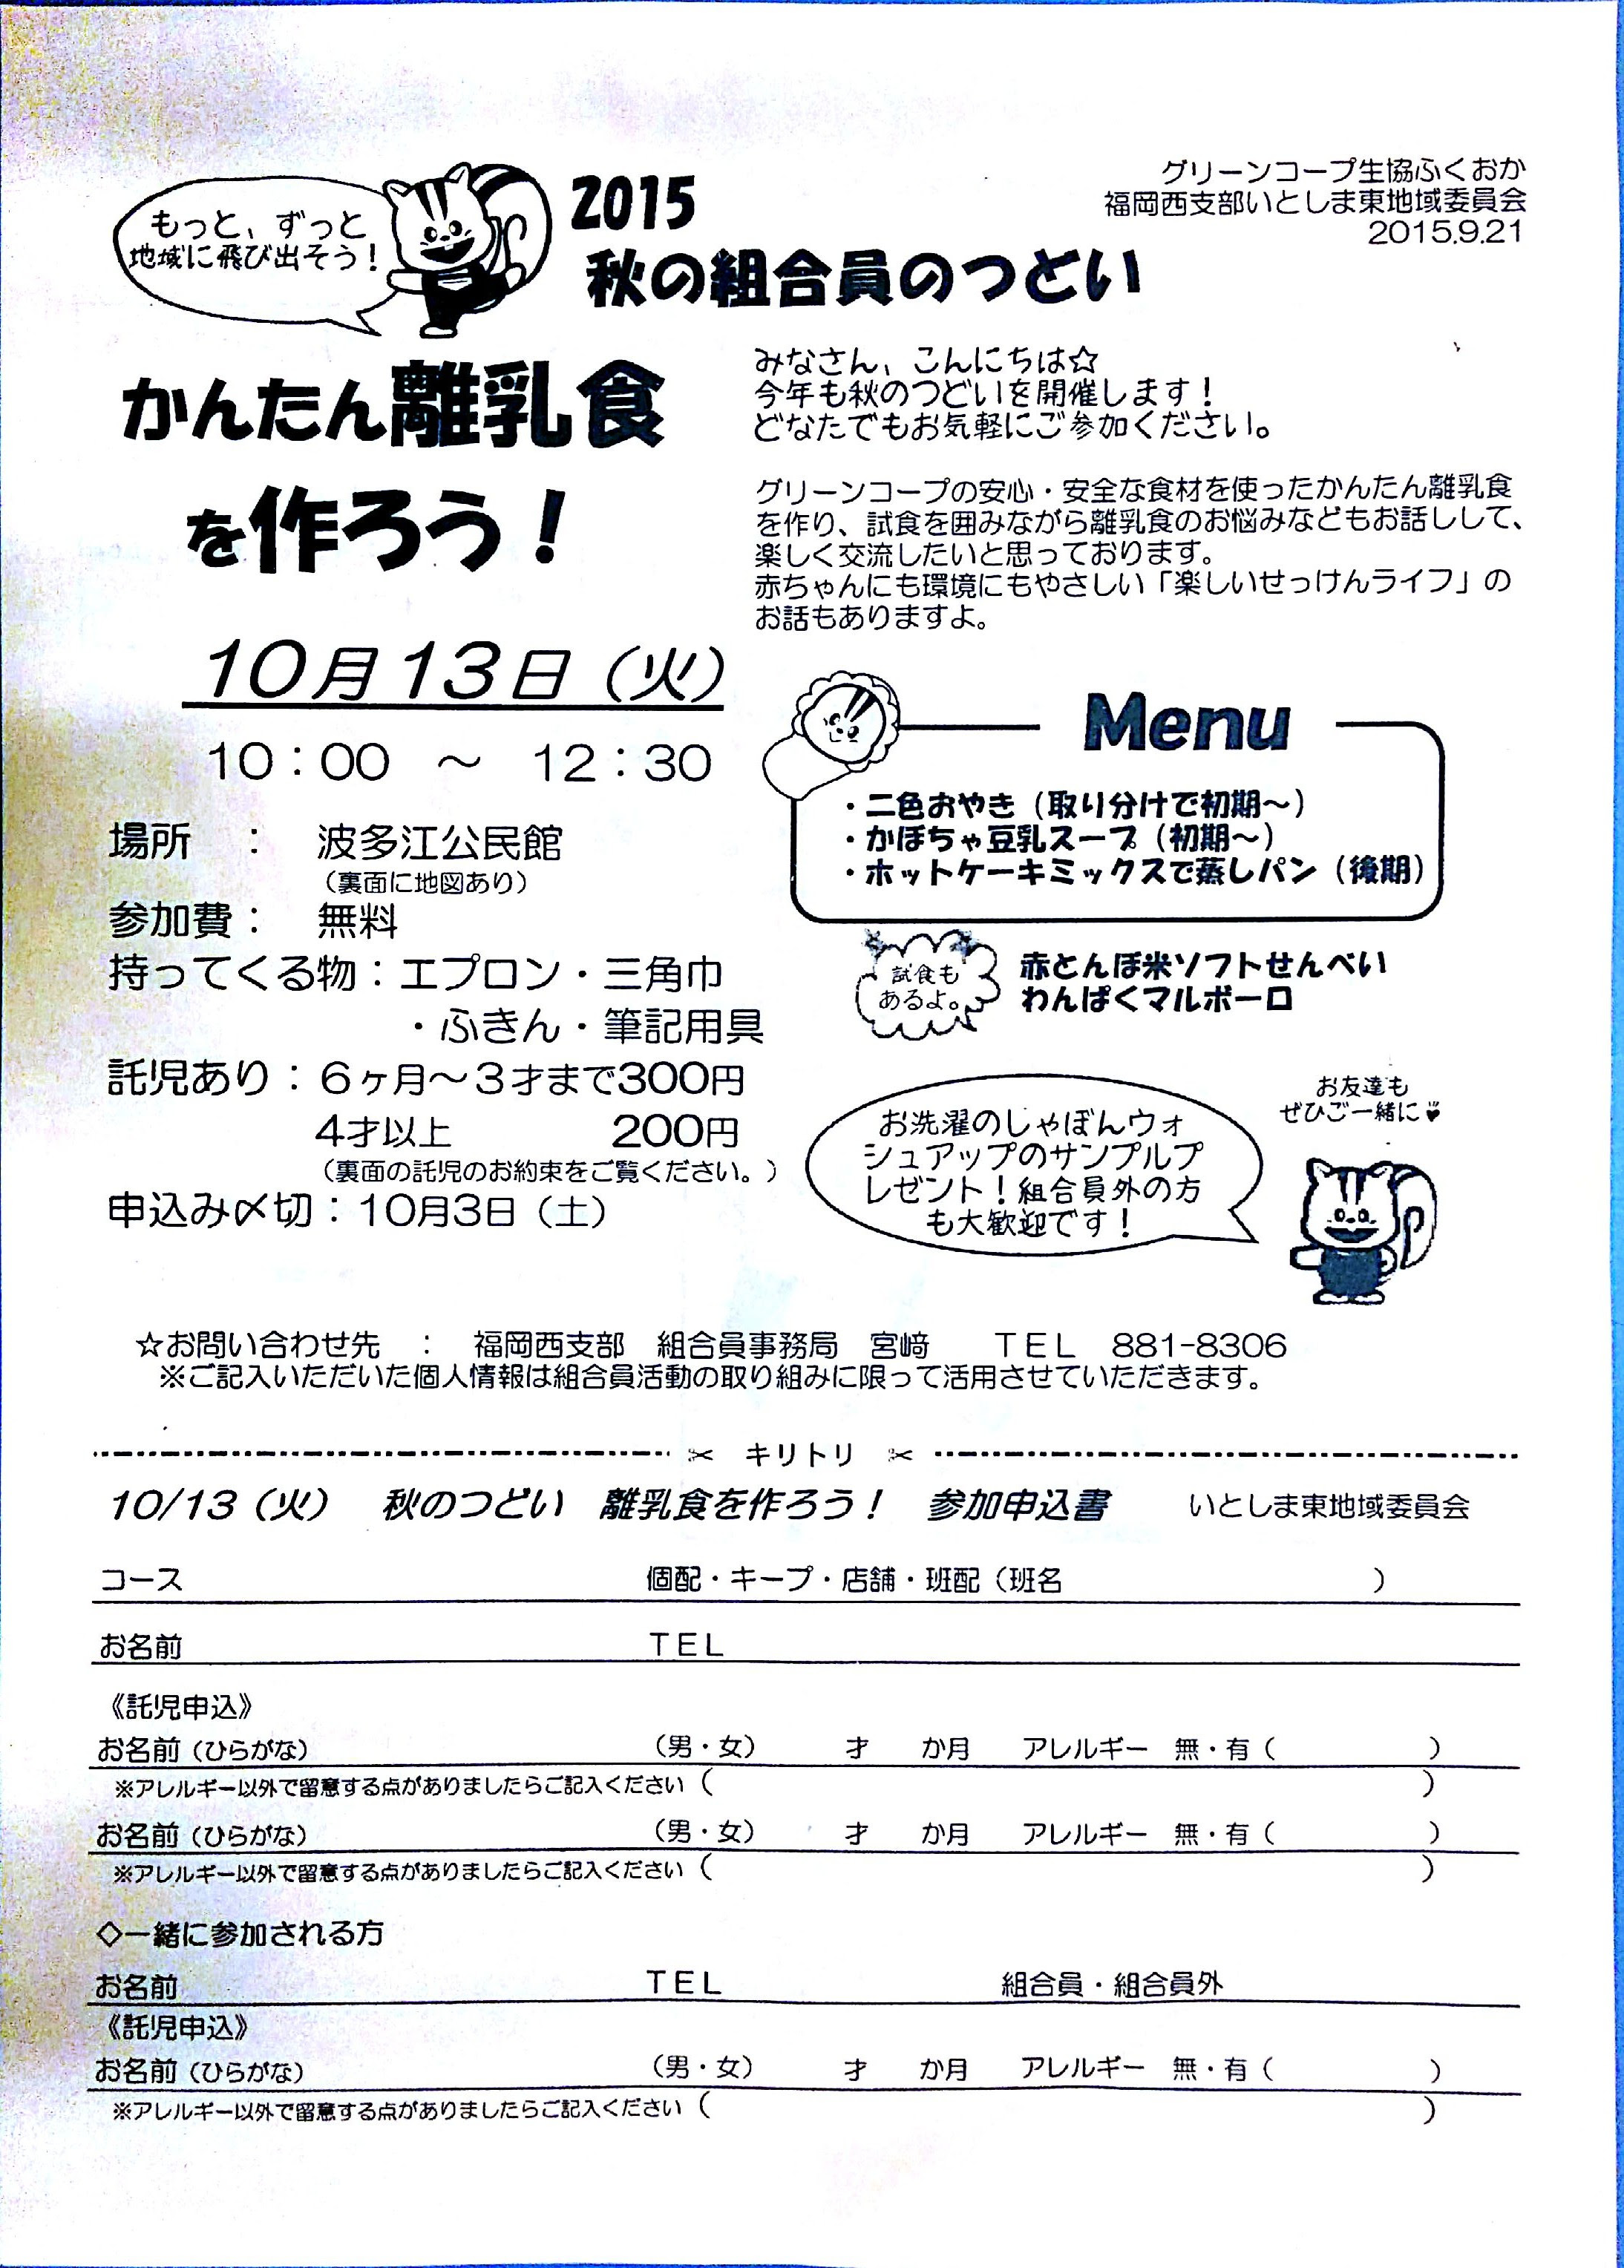 グリーンコープ生協ふくおか
福岡西支部いとしま東地域委員会
2015.9.21
もっと、ずっと
地域に飛び出そう！
2015
秋の組合員のつどい
かんたん離乳食
を作ろう！
みなさん、こんにちは☆
今年も秋のつどいを開催します！
どなたでもお気軽にご参加ください。
グリーンコープの安心・安全な食材を使ったかんたん離乳食
を作り、試食を囲みながら離乳食のお悩みなどもお話しして、
楽しく交流したいと思っております。
赤ちゃんにも環境にもやさしい「楽しいせっけんライフ」の
お話もありますよ。
10月13日（火）
10：00　～　12：30
場所　：　波多江公民館
（裏面に地図あり）
参加費：　無料
持ってくる物：エプロン・三角巾
・ふきん・筆記用具
託児あり：６ヶ月～３才まで300円
4才以上　200円
（裏面の託児のお約束をご覧ください。）
申込み〆切：10月3日（土）
Menu
・二色おやき（取り分けで初期～）
・かぼちゃ豆乳スープ（初期～）
・ホットケーキミックスで蒸しパン（後期）
試食も
あるよ。
赤とんぼ米ソフトせんべい
わんぱくマルボーロ
お洗濯のしゃぼんウォ
シュアップのサンプルプ
レゼント！組合員外の方
も大歓迎です！
お友達も
ぜひご一緒に♥
☆お問い合わせ先　：　福岡西支部　組合員事務局　宮﨑　　ＴＥＬ　881-8306
※ご記入いただいた個人情報は組合員活動の取り組みに限って活用させていただきます。
✂　キリトリ　✂
10/13（火）　秋のつどい　離乳食を作ろう！　参加申込書　　いとしま東地域委員会
コース　個配・キープ・店舗・班配（班名　　　）
お名前　ＴＥＬ
《託児申込》
お名前（ひらがな）　（男・女）　才　か月　アレルギー　無・有（　　　）
※アレルギー以外で留意する点がありましたらご記入ください（　　　）
お名前（ひらがな）　（男・女）　才　か月　アレルギー　無・有（　　　）
※アレルギー以外で留意する点がありましたらご記入ください（　　　）
◇一緒に参加される方
お名前　ＴＥＬ　組合員・組合員外
《託児申込》
お名前（ひらがな）　（男・女）　才　か月　アレルギー　無・有（　　　）
※アレルギー以外で留意する点がありましたらご記入ください（　　　）